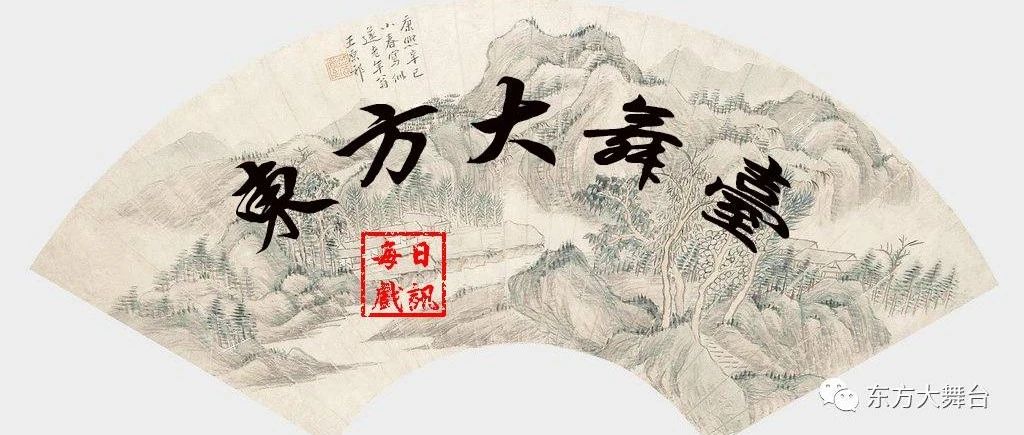 康熙辛巳
小春寫似
蓬老年翁
王原祁
東方大舞臺
每日
戲訊
东方大舞台